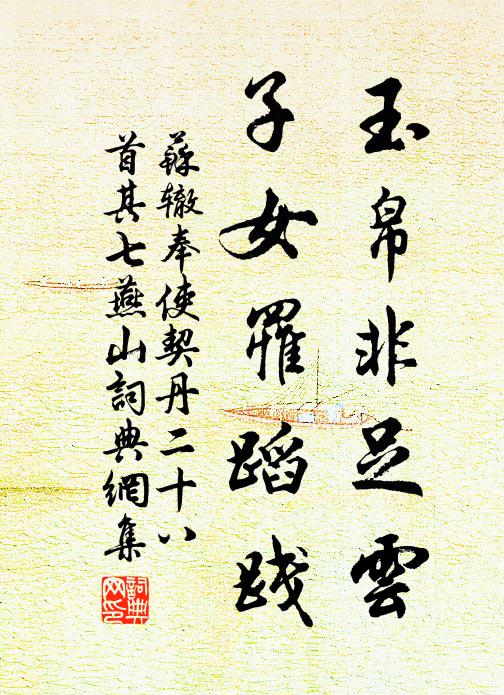 玉帛非足雲
子女罹蹈践
蘇轍奉使契丹二十八
首其七燕山詞典網集
詞典
网印